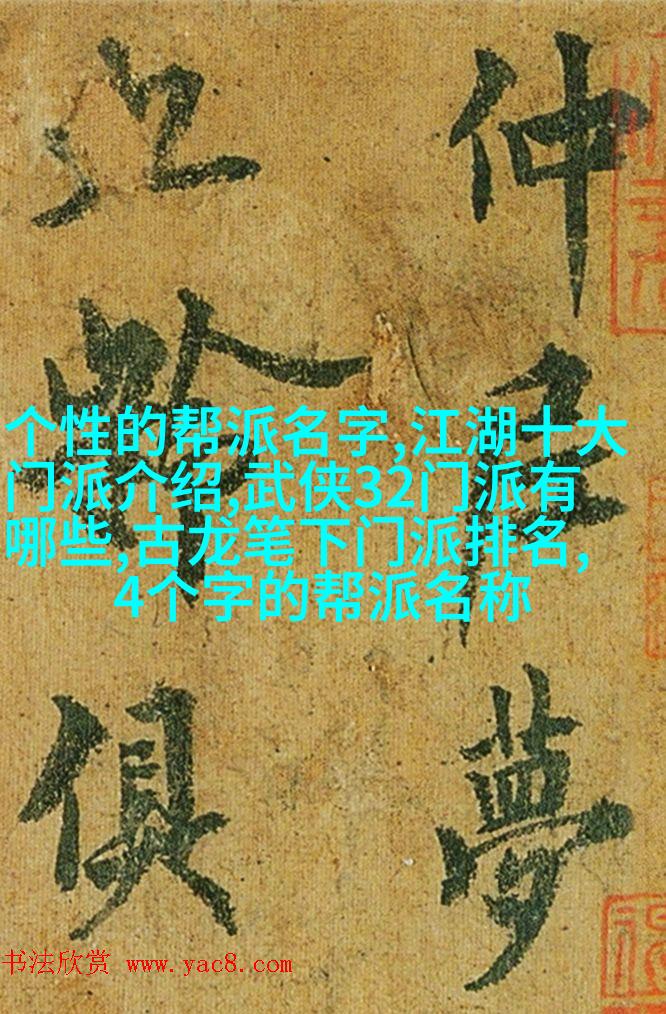 仲尼夢
齡俱
个性的帮派名字,江湖十大
门派介绍,武侠32门派有
哪些,古龙笔下门派排名,
4个字的帮派名称
书法欣赏 www.yac8.com